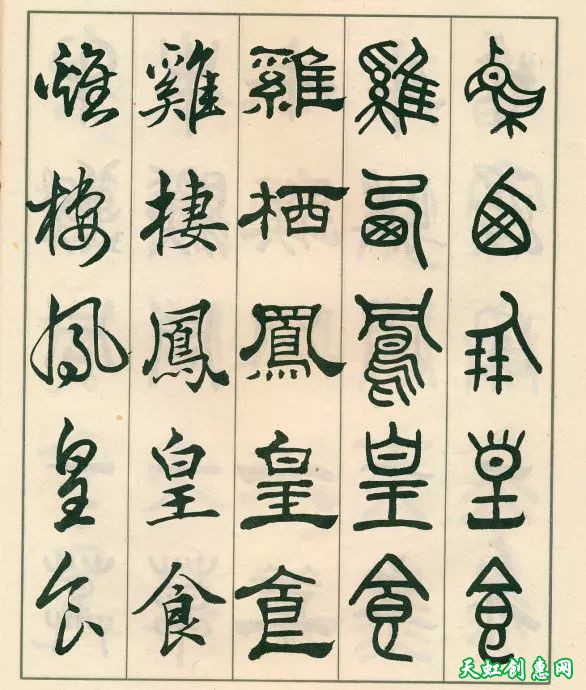 雞西鳳皇食
雞西鳳皇食
雞栖鳳皇食
雞棲鳳皇食
雞棲鳳皇食
天虹创意网